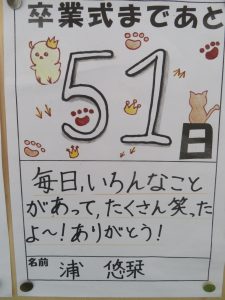 卒業式まであと
51
日
毎日,いろんなこと
があって,たくさん笑った
よ〜!ありがとう!
名前 浦 悠栞